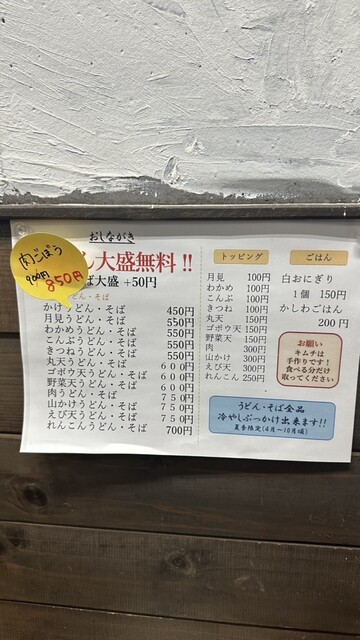 おしながき
肉ごぼう
900円
850円
ん大盛無料!!
ば大盛 +50円
どん・そば
かけうどん・そば 450円
月見うどん・そば 550円
わかめうどん・そば 550円
こんぶうどん・そば 550円
きつねうどん・そば 550円
丸天うどん・そば 600円
ゴボウ天うどん・そば 600円
野菜天うどん・そば 600円
肉うどん・そば 750円
山かけうどん・そば 750円
えび天うどん・そば 750円
れんこんうどん・そば 700円
トッピング
月見 100円
わかめ 100円
こんぶ 100円
きつね 100円
丸天 150円
ゴボウ天 150円
野菜天 150円
肉 300円
山かけ 300円
えび天 300円
れんこん 250円
ごはん
白おにぎり
1個 150円
かしわごはん
200円
お願い
キムチは
手作りです!
食べる分だけ
取ってください
うどん・そば全品
冷やしぶっかけ出来ます!!
夏季限定(4月〜10月頃)